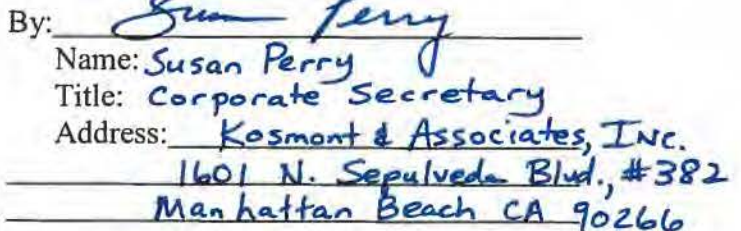 By: Susan Perry
Name: Susan Perry
Title: Corporate Secretary
Address: Kosmont & Associates, Inc.
1601 N. Sepulveda Blvd., #382
Manhattan Beach CA 90266